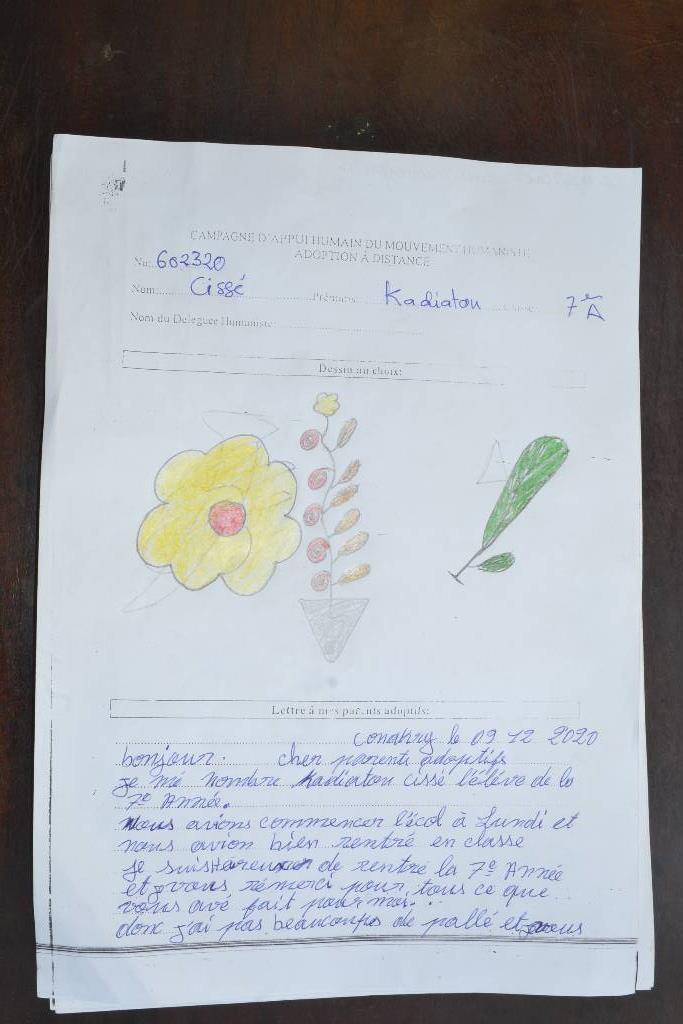 CAMPAGNE D'APPUI HUMAIN DU MOUVEMENT HUMANISTE
ADOPTION À DISTANCE
No: 602320
Nom: Cissé Prénoms: Kadiatou Classe: 7e A
Nom du Deleguee Humaniste:
Dessin au choix:
Lettre à mes parents adoptifs:
Conakry le 09 12 2020
bonjour. cher parents adoptifs
je mé Nombre Kadiatou cissé l'élève de la
7e Année.
Nous avions commencer l'écol à Lundi et
nous avion bien rentré en classe
je suis Hereux de rentré la 7e Année
et vous rémerci pour tous ce que
vous avé fait pour moi.
donc j'ai pas beaucoups de pallé et vous